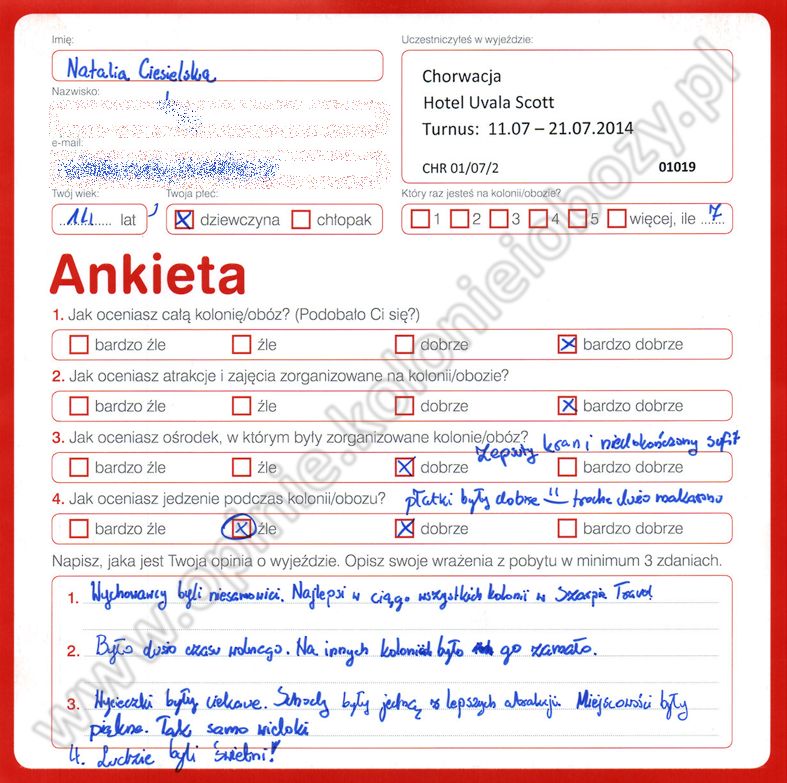 Imię:
Uczestniczyłeś w wyjeździe:
Natalia Ciesielska
Chorwacja
Hotel Uvala Scott
Turnus: 11.07 – 21.07.2014
CHR 01/07/2 01019
Nazwisko:
e-mail:
Twój wiek: Twoja płeć: Który raz jesteś na kolonii/obozie?
14 lat dziewczyna chłopak 1 2 3 4 5 więcej, ile 7
Ankieta
1. Jak oceniasz całą kolonię/obóz? (Podobało Ci się?)
bardzo źle źle dobrze bardzo dobrze
2. Jak oceniasz atrakcje i zajęcia zorganizowane na kolonii/obozie?
bardzo źle źle dobrze bardzo dobrze
3. Jak oceniasz ośrodek, w którym były zorganizowane kolonie/obóz?
zepsuty kran i niedokończony sufit
bardzo źle źle dobrze bardzo dobrze
4. Jak oceniasz jedzenie podczas kolonii/obozu? płatki były dobre trochę dużo makaronu
bardzo źle źle dobrze bardzo dobrze
Napisz, jaka jest Twoja opinia o wyjeździe. Opisz swoje wrażenia z pobytu w minimum 3 zdaniach.
1. Wychowawcy byli niesamowici. Najlepsi w ciągo wszystkich kolonii w Szarpie Travel
2. Było dużo czasu wolnego. Na innych koloniach było go zamało.
3. Wycieczki były ciekawe. Schody były jedną z lepszych atrakcji. Miejscowości były
piękne. Tak samo widoki
4. Ludzie byli świetni!
www.opinie.kolonieiobozy.pl